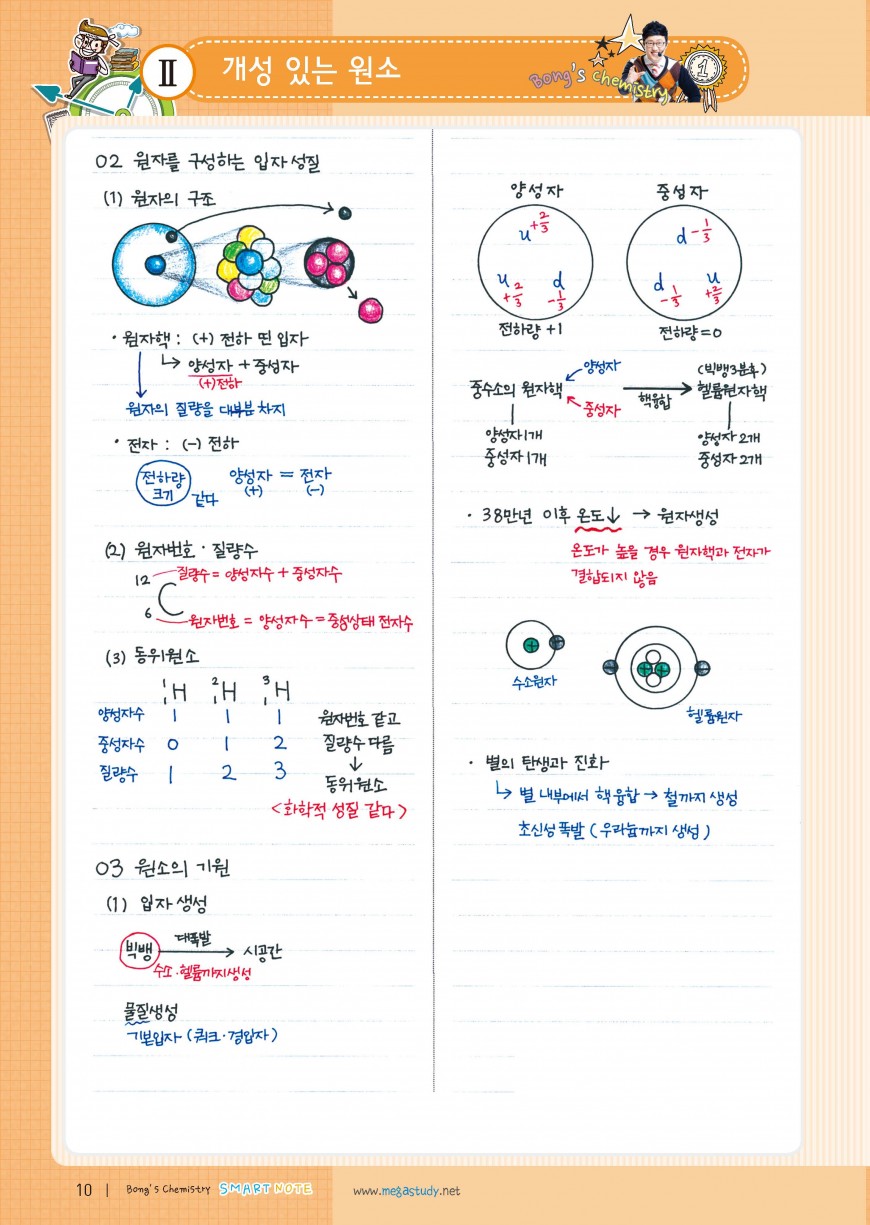 Ⅱ 개성 있는 원소
Bong's chemistry
1
02 원자를 구성하는 입자 성질
(1) 원자의 구조
· 원자핵 : (+) 전하 띤 입자
↳ 양성자 + 중성자
(+)전하
원자의 질량을 대부분 차지
· 전자 : (-) 전하
전하량 크기 같다 양성자 = 전자
(+) (-)
(2) 원자번호 · 질량수
12 질량수 = 양성자수 + 중성자수
C
6 원자번호 = 양성자수 = 중성상태 전자수
(3) 동위원소
¹₁H ²₁H ³₁H
양성자수 1 1 1 원자번호 같고
중성자수 0 1 2 질량수 다름
↓
질량수 1 2 3 동위원소
<화학적 성질 같다>
03 원소의 기원
(1) 입자 생성
빅뱅 대폭발 → 시공간
수소·헬륨까지생성
물질생성
기본입자 (쿼크·경입자)
양성자 중성자
u +2/3 d -1/3
u +2/3 d -1/3 d -1/3 u +2/3
전하량 +1 전하량 = 0
양성자 (빅뱅3분후)
중수소의 원자핵 → 헬륨원자핵
중성자 핵융합
양성자1개 양성자 2개
중성자 1개 중성자 2개
· 38만년 이후 온도↓ → 원자생성
온도가 높을 경우 원자핵과 전자가
결합되지 않음
수소원자 헬륨원자
· 별의 탄생과 진화
↳ 별 내부에서 핵융합 → 철까지 생성
초신성 폭발 (우라늄까지 생성)
10 | Bong's Chemistry SMART NOTE www.megastudy.net